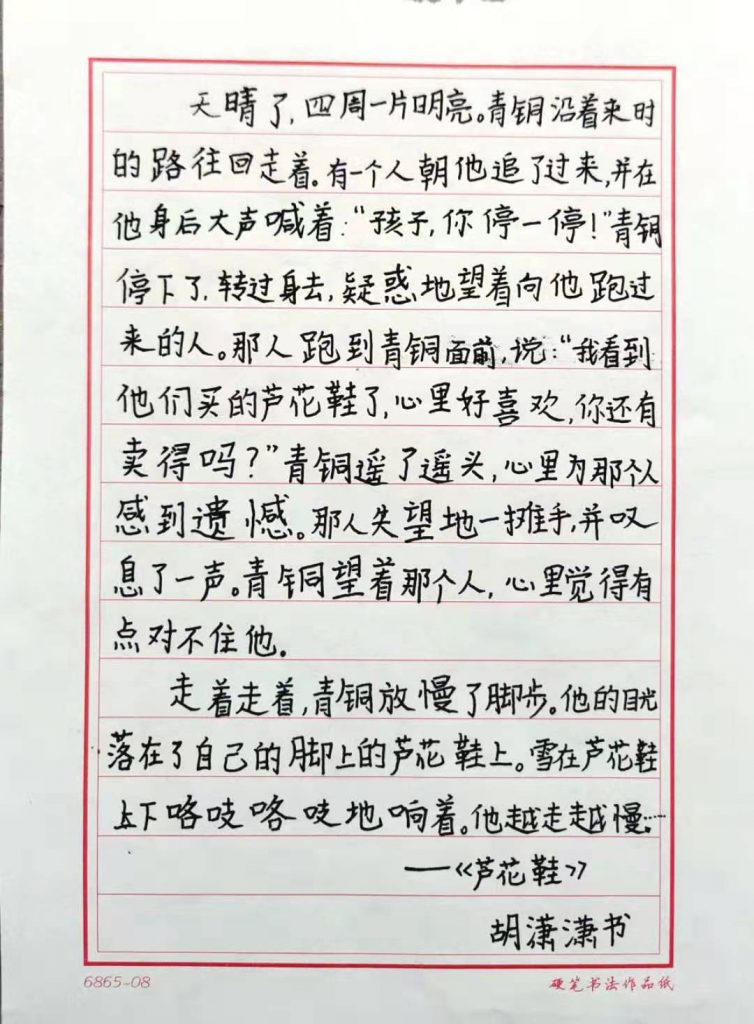 天晴了，四周一片明亮。青铜沿着来时
的路往回走着。有一个人朝他追了过来，并在
他身后大声喊着：“孩子，你停一停！”青铜
停下了，转过身去，疑惑地望着向他跑过
来的人。那人跑到青铜面前，说：“我看到
他们买的芦花鞋了，心里好喜欢，你还有
卖得吗？”青铜遥了遥头，心里为那个人
感到遗憾。那人失望地一摊手，并叹
息了一声。青铜望着那个人，心里觉得有
点对不住他。
走着走着，青铜放慢了脚步。他的目光
落在了自己的脚上的芦花鞋上。雪在芦花鞋
上下咯吱咯吱地响着。他越走越慢……
——《芦花鞋》
胡潇潇书
6865-08 硬笔书法作品纸